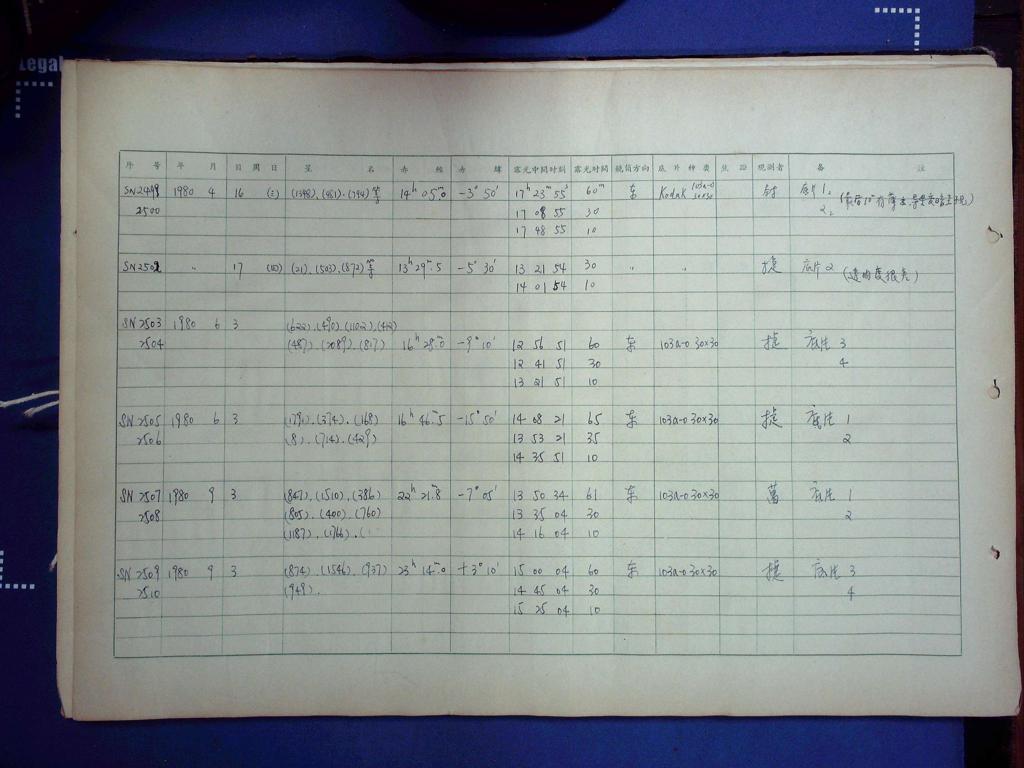 Legal
序号 年 月 日 周日 星名 赤经 赤纬 露光中间时刻 露光时间 镜筒方向 底片种类 焦距 观测者 备註
SN2499 1980 4 16 (三) (1348).(481).(794)等 14h 05.m0 -3° 50' 17h 23m 55s 60m 东 Kodak 103a-0 30×30 底片 1,
2500 17 08 55 30 2,
17 48 55 10
SN2502 〃 17 (四) (21).(503).(872)等 13h 29m.5 -5° 30' 13 21 54 30 〃 〃 捷 底片 2
14 01 54 10
SN2503 1980 6 3 (622).(490).(1102).(412)
2504 (487).(2089).(817) 16h 28m.0 -9° 10' 12 56 51 60 东 103a-0 30×30 捷 底片 3
12 41 51 30 4
13 21 51 10
SN2505 1980 6 3 (1791).(374).(168) 16h 46m.5 -15° 50' 14 08 21 65 东 103a-0 30×30 捷 底片 1
2506 (8).(714).(429) 13 53 21 35 2
14 35 51 10
SN2507 1980 9 3 (847).(1510).(386) 22h 21m.8 -7° 05' 13 50 34 61 东 103a-0 30×30 底片 1
2508 (805).(400).(760) 13 35 04 30 2
(1187).(1766).( 14 16 04 10
SN2509 1980 9 3 (874).(1546).(937) 23h 14m.0 +3° 10' 15 00 04 60 东 103a-0 30×30 捷 底片 3
2510 (949). 14 45 04 30 4
15 25 04 10